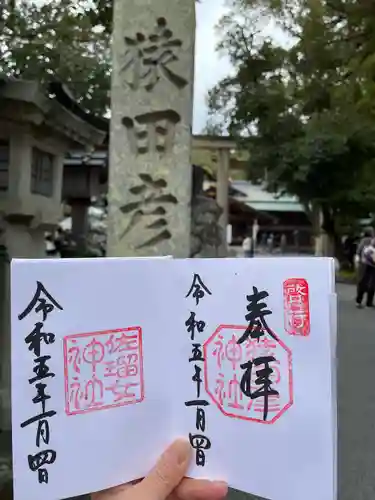 猿田彦
啓行
奉拝
猿田彦神社
令和五年一月四日
佐瑠女神社
令和五年一月四日